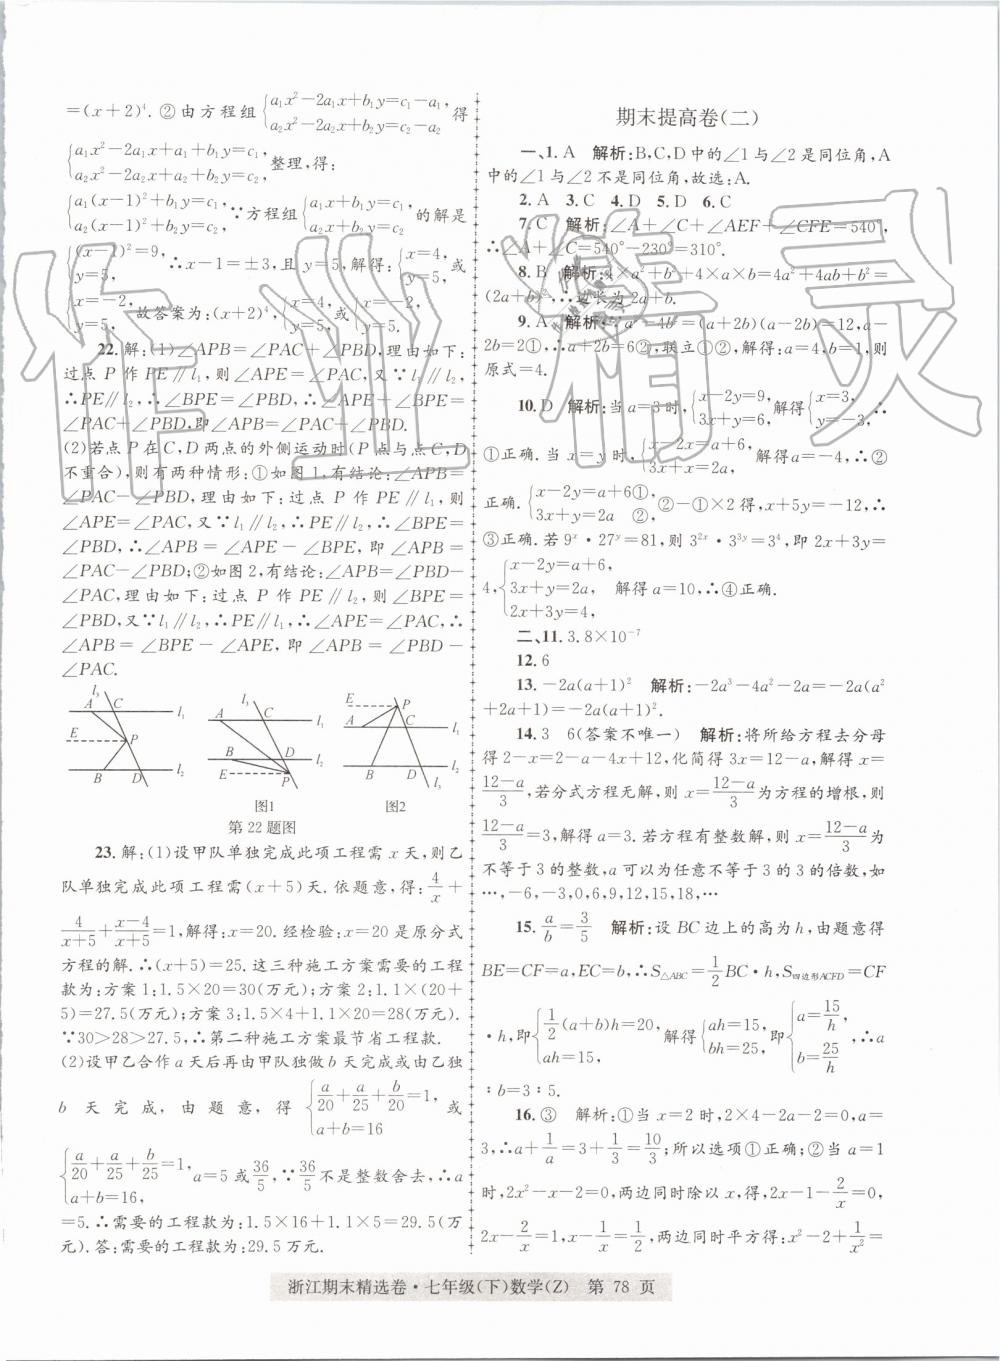 =(x+2)⁴. ②由方程组{a₁x²-2a₁x+b₁y=c₁-a₁, a₂x²-2a₂x+b₂y=c₂-a₂ 得
{a₁x²-2a₁x+a₁+b₁y=c₁, a₂x²-2a₂x+a₂+b₂y=c₂, 整理,得:
{a₁(x-1)²+b₁y=c₁, a₂(x-1)²+b₂y=c₂, ∵方程组{a₁x+b₁y=c₁, a₂x+b₂y=c₂ 的解是
{(x-1)²=9, y=5, ∴x-1=±3,且y=5,解得:{x=4, y=5, 或
{x=-2, y=5, 故答案为:(x+2)⁴,{x=4, y=5, 或{x=-2, y=5.
22. 解:(1)∠APB=∠PAC+∠PBD,理由如下:
过点P作PE∥l₁,则∠APE=∠PAC,又∵l₁∥l₂,
∴PE∥l₂,∴∠BPE=∠PBD,∴∠APE+∠BPE=
∠PAC+∠PBD,即∠APB=∠PAC+∠PBD.
(2)若点P在C,D两点的外侧运动时(P点与点C,D
不重合),则有两种情形:①如图1,有结论:∠APB=
∠PAC-∠PBD,理由如下:过点P作PE∥l₁,则
∠APE=∠PAC,又∵l₁∥l₂,∴PE∥l₂,∴∠BPE=
∠PBD,∴∠APB=∠APE-∠BPE,即∠APB=
∠PAC-∠PBD;②如图2,有结论:∠APB=∠PBD-
∠PAC,理由如下:过点P作PE∥l₂,则∠BPE=
∠PBD,又∵l₁∥l₂,∴PE∥l₁,∴∠APE=∠PAC,∴
∠APB=∠BPE-∠APE,即∠APB=∠PBD-
∠PAC.
l₃ A C l₁ E P B D l₂
l₃ A C l₁ B D l₂ E P
l₃ E P A C l₁ B D l₂
图1 图2
第22题图
23. 解:(1)设甲队单独完成此项工程需x天,则乙
队单独完成此项工程需(x+5)天.依题意,得:4/x+
4/(x+5)+(x-4)/(x+5)=1,解得:x=20. 经检验:x=20是原分式
方程的解.∴(x+5)=25. 这三种施工方案需要的工程
款为:方案1:1.5×20=30(万元);方案2:1.1×(20+
5)=27.5(万元);方案3:1.5×4+1.1×20=28(万元).
∵30>28>27.5,∴第二种施工方案最节省工程款.
(2)设甲乙合作a天后再由甲队独做b天完成或由乙独
b天完成,由题意,得{a/20+a/25+b/20=1, a+b=16 或
{a/20+a/25+b/25=1, a+b=16, a=5或36/5,∵36/5不是整数舍去,∴a
=5.∴需要的工程款为:1.5×16+1.1×5=29.5(万
元).答:需要的工程款为:29.5万元.
期末提高卷(二)
一、1. A 解析:B,C,D中的∠1与∠2是同位角,A
中的∠1与∠2不是同位角,故选:A.
2. A 3. C 4. D 5. D 6. C
7. C 解析:∠A+∠C+∠AEF+∠CFE=540°,
∴∠A+∠C=540°-230°=310°.
8. B 解析:4×a²+b²+4×a×b=4a²+4ab+b²=
(2a+b)²,∴边长为2a+b.
9. A 解析:∵a²-4b²=(a+2b)(a-2b)=12,a-
2b=2①,∴a+2b=6②,联立①②,解得:a=4,b=1,则
原式=4.
10. D 解析:当a=3时,{x-2y=9, 3x+y=6, 解得{x=3, y=-3, ∴
①正确.当x=y时,{x-2x=a+6, 3x+x=2a, 解得:a=-4,∴②
正确.{x-2y=a+6①, 3x+y=2a ②, ②-①×2得,x+5y=-12,∴
③正确.若9ˣ·27ʸ=81,则3²ˣ·3³ʸ=3⁴,即2x+3y=
4,{x-2y=a+6, 3x+y=2a, 2x+3y=4, 解得a=10,∴④正确.
二、11. 3.8×10⁻⁷
12. 6
13. -2a(a+1)² 解析:-2a³-4a²-2a=-2a(a²
+2a+1)=-2a(a+1)².
14. 3 6(答案不唯一) 解析:将所给方程去分母
得2-x=2-a-4x+12,化简得3x=12-a,解得:x=
(12-a)/3,若分式方程无解,则x=(12-a)/3为方程的增根,则
(12-a)/3=3,解得a=3. 若方程有整数解,则x=(12-a)/3为
不等于3的整数,a可以为任意不等于3的3的倍数,如
…,-6,-3,0,6,9,12,15,18,…
15. a/b=3/5 解析:设BC边上的高为h,由题意得
BE=CF=a,EC=b,∴S△ABC=1/2BC·h,S四边形ACFD=CF
·h,即{1/2(a+b)h=20, ah=15, 解得{ah=15, bh=25, 即{a=15/h, b=25/h, ∴a
∶b=3∶5.
16. ③ 解析:①当x=2时,2×4-2a-2=0,a=
3,∴a+1/a=3+1/3=10/3;所以选项①正确;②当a=1
时,2x²-x-2=0,两边同时除以x,得,2x-1-2/x=0,
2x-2/x=1,x-1/x=1/2,两边同时平方得:x²+1/x²=
浙江期末精选卷·七年级(下)数学(Z) 第 78 页
作业精灵